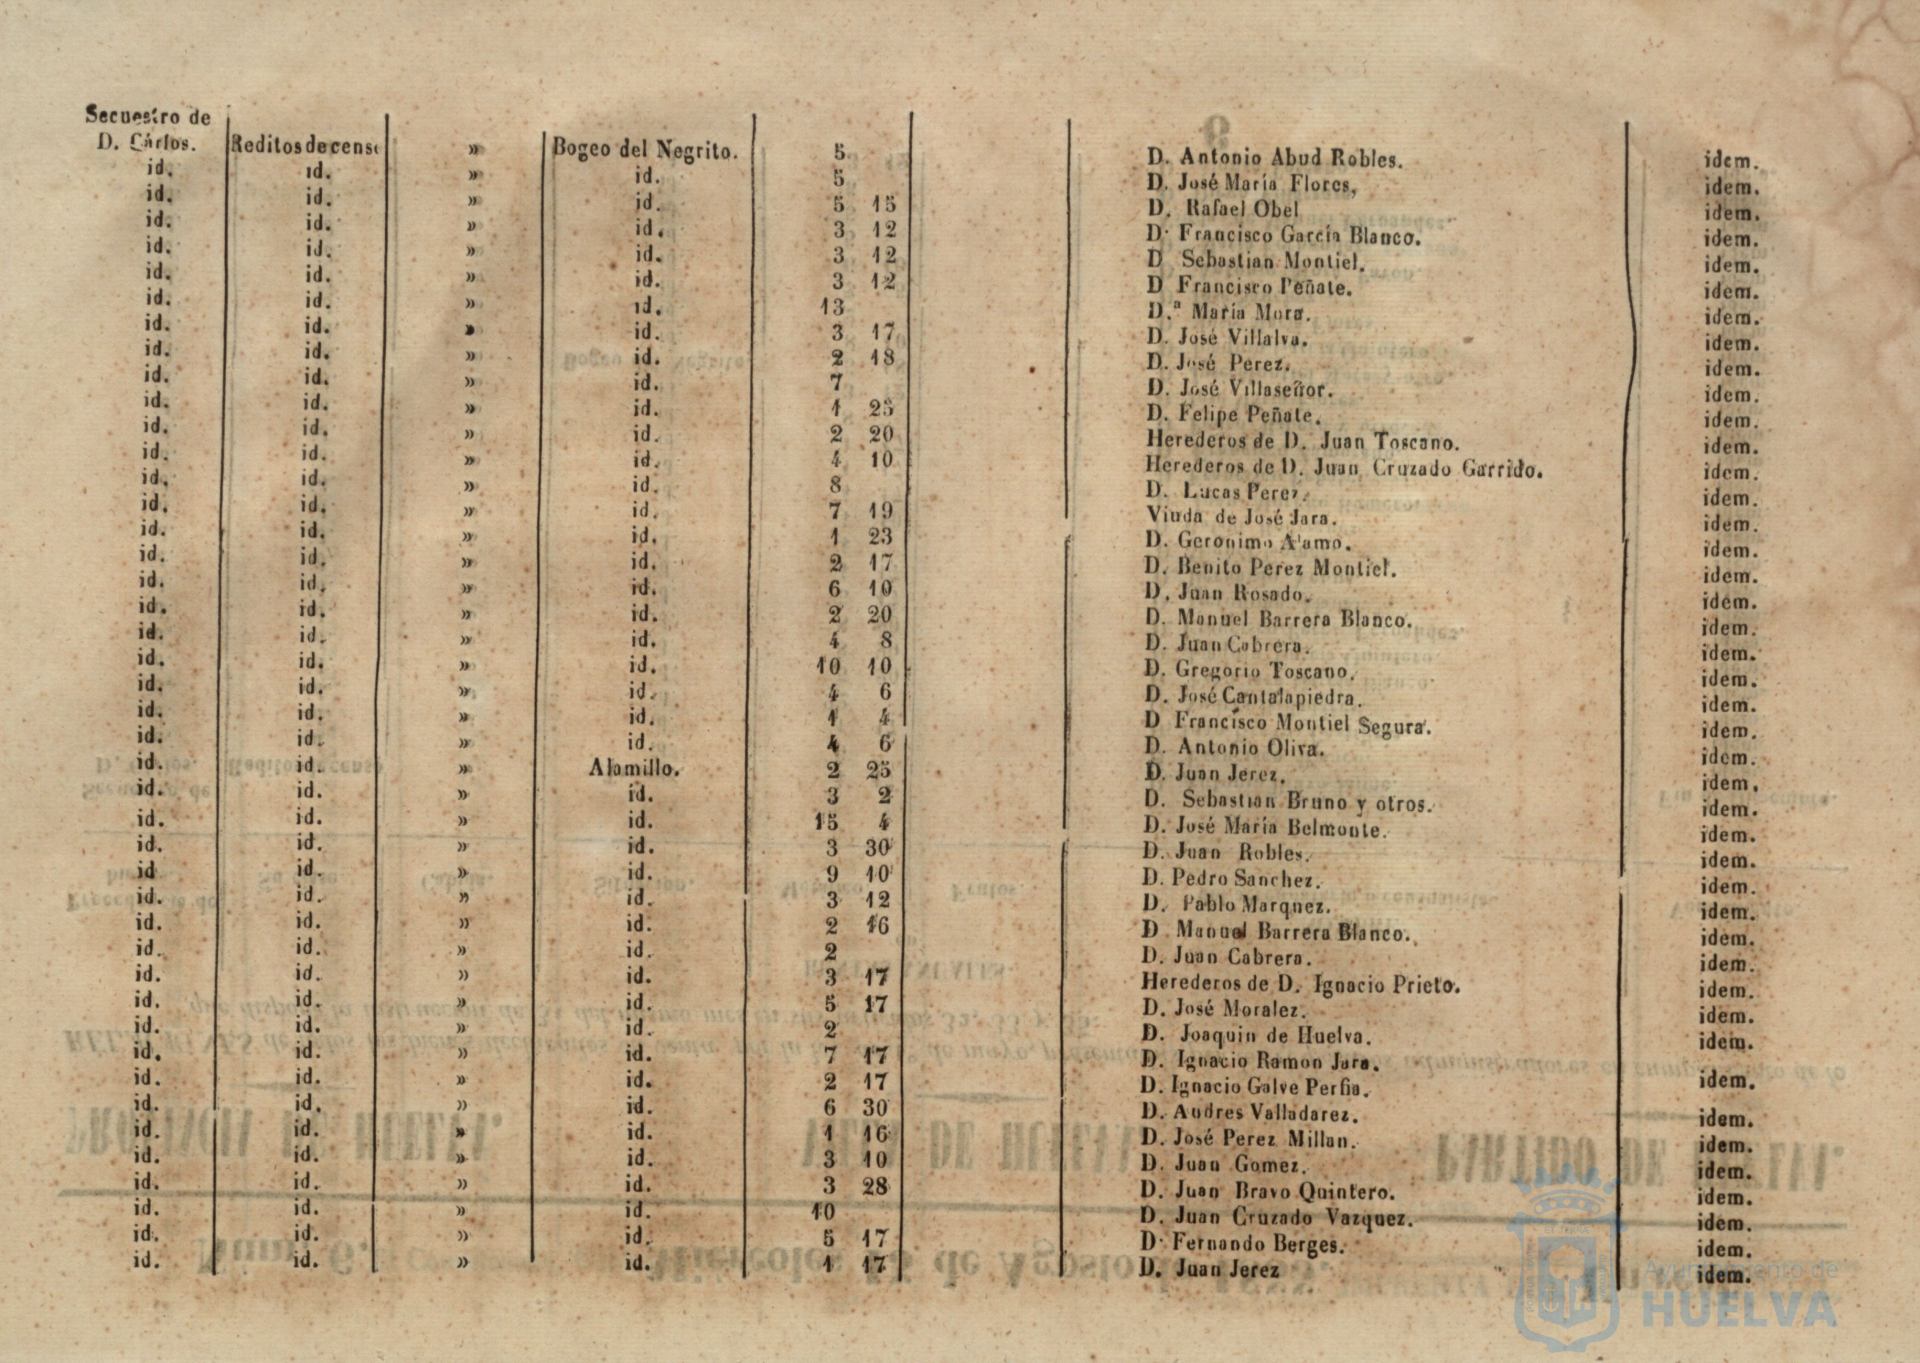 Secuestro de
D. Cárlos. Reditos de censo » Bogeo del Negrito. 5 D. Antonio Abud Robles. idem.
id. id. » id. 5 D. José María Flores, idem.
id. id. » id. 5 15 D. Rafael Obel idem.
id. id. » id. 3 12 D. Francisco García Blanco. idem.
id. id. » id. 3 12 D Sebastian Montiel. idem.
id. id. » id. 3 12 D Francisco Peñate. idem.
id. id. » id. 13 D.ª María Mora. idem.
id. id. » id. 3 17 D. José Villalva. idem.
id. id. » id. 2 18 D. José Perez. idem.
id. id. » id. 7 D. José Villaseñor. idem.
id. id. » id. 1 25 D. Felipe Peñate. idem.
id. id. » id. 2 20 Herederos de D. Juan Toscano. idem.
id. id. » id. 4 10 Herederos de D. Juan Cruzado Garrido. idem.
id. id. » id. 8 D. Lucas Perez. idem.
id. id. » id. 7 19 Viuda de José Jara. idem.
id. id. » id. 1 23 D. Geronimo Alamo. idem.
id. id. » id. 2 17 D. Benito Perez Montiel. idem.
id. id. » id. 6 10 D. Juan Rosado. idem.
id. id. » id. 2 20 D. Manuel Barrera Blanco. idem.
id. id. » id. 4 8 D. Juan Cabrera. idem.
id. id. » id. 10 10 D. Gregorio Toscano. idem.
id. id. » id. 4 6 D. José Cantalapiedra. idem.
id. id. » id. 1 4 D Francisco Montiel Segura. idem.
id. id. » id. 4 6 D. Antonio Oliva. idem.
id. id. » Alamillo. 2 25 D. Juan Jerez. idem.
id. id. » id. 3 2 D. Sebastian Bruno y otros. idem.
id. id. » id. 15 4 D. José María Belmonte. idem.
id. id. » id. 3 30 D. Juan Robles. idem.
id id. » id. 9 10 D. Pedro Sanchez. idem.
id. id. » id. 3 12 D. Pablo Marquez. idem.
id. id. » id. 2 16 D Manuel Barrera Blanco. idem.
id. id. » id. 2 D. Juan Cabrera. idem.
id. id. » id. 3 17 Herederos de D. Ignacio Prieto. idem.
id. id. » id. 5 17 D. José Moralez. idem.
id. id. » id. 2 D. Joaquin de Huelva. idem.
id. id. » id. 7 17 D. Ignacio Ramon Jara. idem.
id. id. » id. 2 17 D. Ignacio Galve Perfia.
id. id. » id. 6 30 D. Audres Valladarez. idem.
id. id. » id. 1 16 D. José Perez Millan. idem.
id. id. » id. 3 10 D. Juan Gomez. idem.
id. id. » id. 3 28 D. Juan Bravo Quintero. idem.
id. id. » id. 10 D. Juan Cruzado Vazquez. idem.
id. id. » id. 5 17 D. Fernando Berges. idem.
id. id. » id. 1 17 D. Juan Jerez idem.
Ayuntamiento de
HUELVA